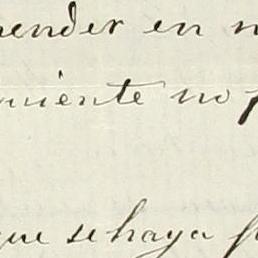 ender en
niente no
que se haya